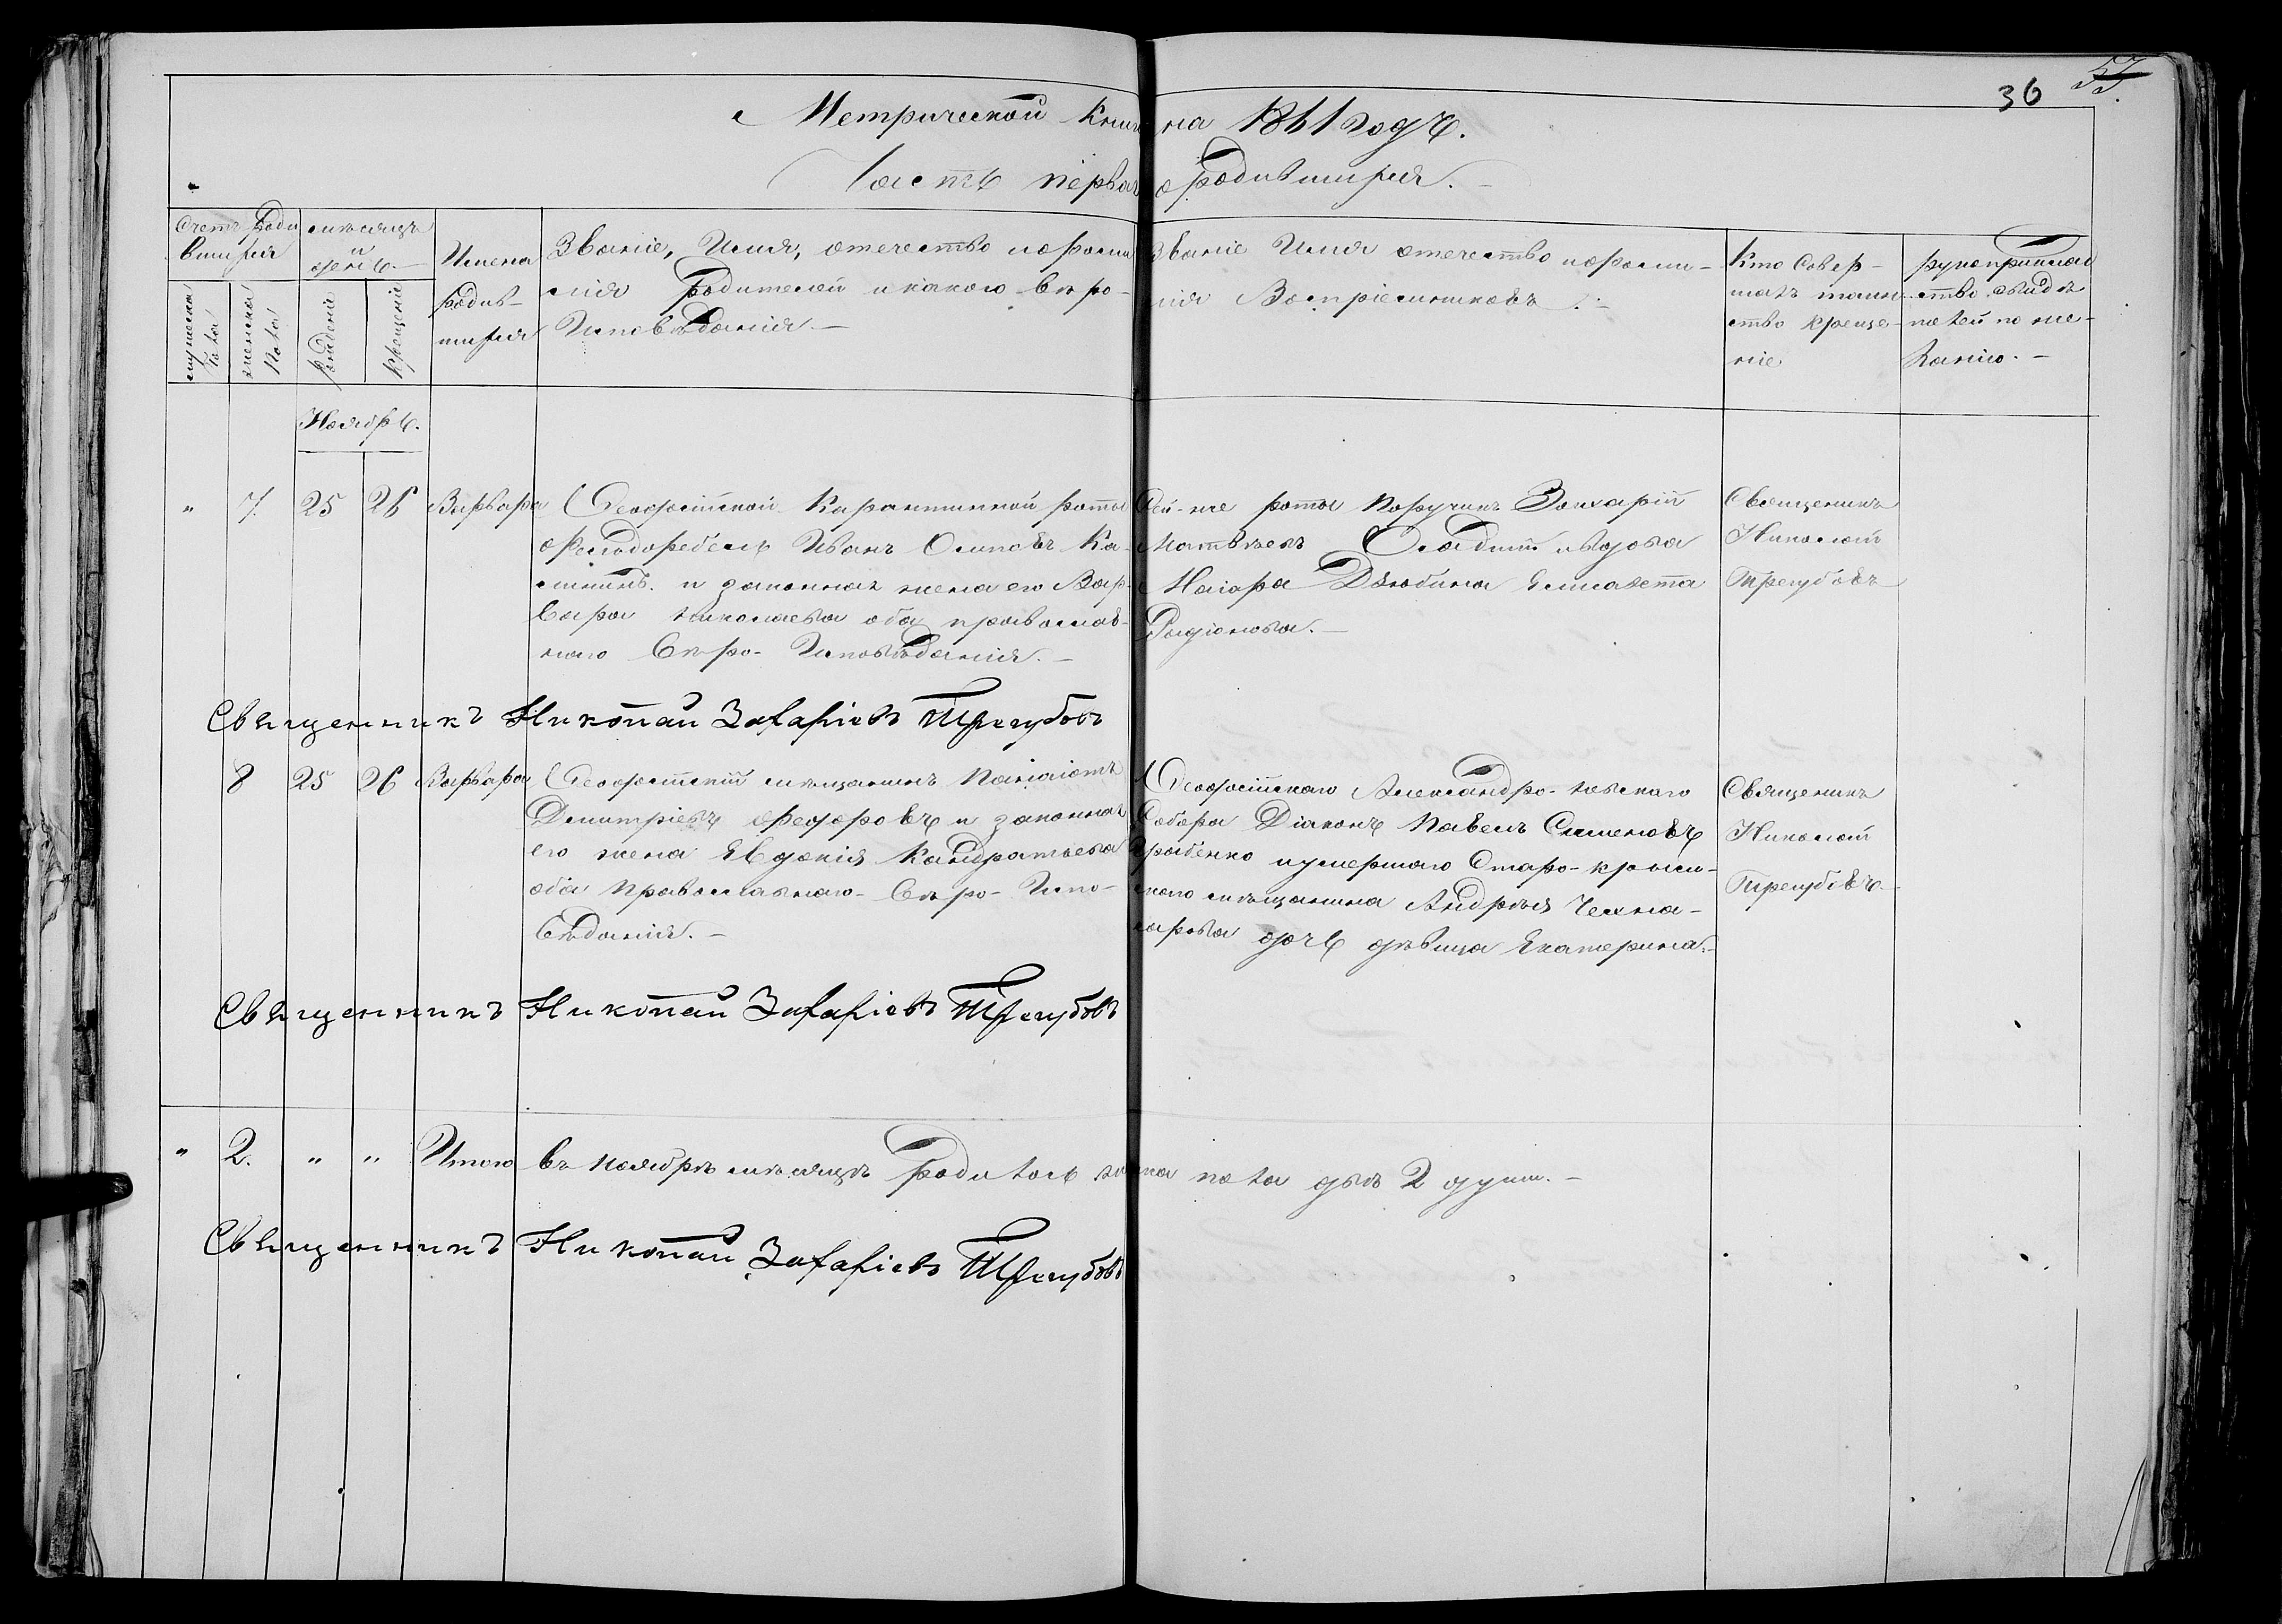 36 57.
Метрической Книги на 1861 годъ.
Часть первая о родившихся.
Счетъ роди
вшихся
мужеска
пола
женска
пола
мѣсяцъ
и
день.
рожденіе
крещеніе
Имена
родив-
шихся
Званіе, Имя, отечество и фами
лія Родителей и какого вѣро-
Исповѣданія.
Званіе Имя отечество и фами-
лія Воспріемниковъ.
Кто Совер-
шалъ таин-
ство креще-
ніе
рукоприклад
ство свидѣ
телей по же-
ланію.
Ноябрь.
" 7. 25 26 Варвара
Феодосійской Карантинной роты
Фельдфебель Иванъ Осиповъ Ка-
и законная жена его Вар-
вара Николаева оба православ-
наго Вѣро-Исповѣданія.
Сей-же роты Поручикъ Захарій
Матвѣевъ и вдова
Маіора Дзюбина Елисавета
Родіонова.
Священикъ
Николай
Трегубовъ
Священникъ Николай Захаріевъ Трегубовъ
8 25 26 Варвара
Феодосійскій мѣщанинъ Панаіотъ
Димитріевъ Федоровъ и законная
его жена Евдокія Кандратьева
оба Православнаго-Вѣро-Испо-
вѣданія.
Феодосійскаго Александро-Невскаго
Собора Діаконъ Павелъ Сименовъ
Грабенко и умершаго Старо-крым-
скаго мѣщанина Андрѣя
дочь дѣвица Екатерина.
Священикъ
Николай
Трегубовъ.
Священникъ Николай Захаріевъ Трегубовъ
" 2. " " Итого въ Ноябрѣ мѣсяцѣ родилось женска пола двѣ 2 душ.
Священникъ Николай Захаріевъ Трегубовъ